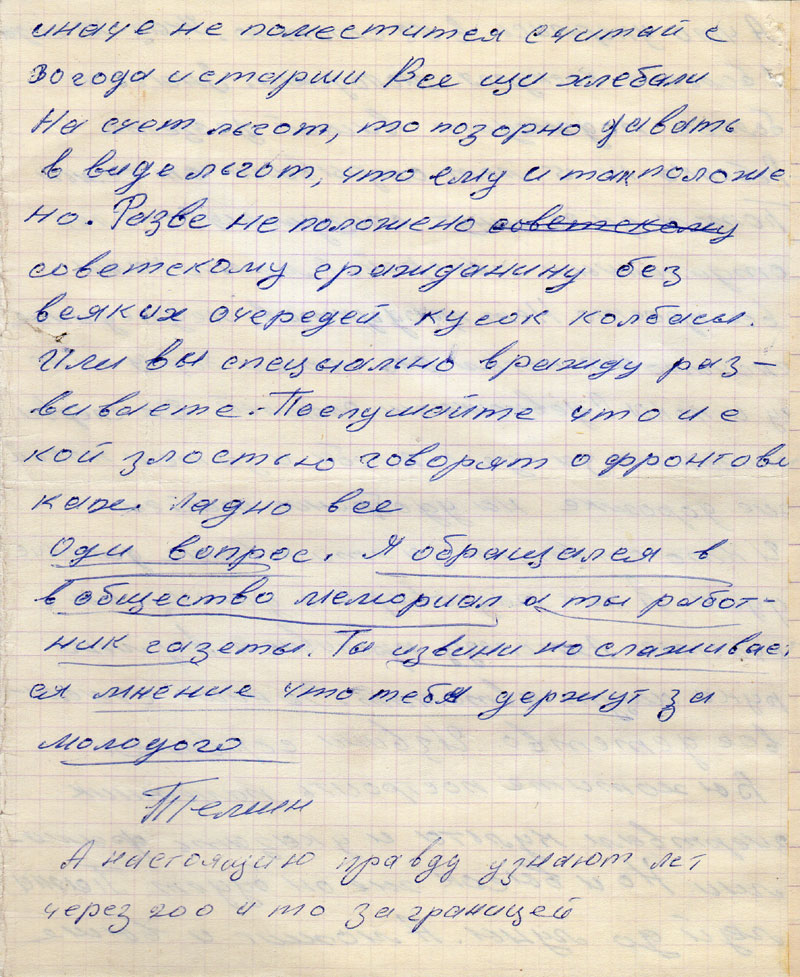 иначе не поместится считай с
30 года и старши Все щи хлебали
На счет льгот, то позорно давать
в виде льгот, что ему и так положе
но. Разве не положено советскому
советскому гражданину без
всяких очередей кусок колбасы.
Или вы специально вражду раз-
виваете. Послушайте что и с
кой злостью говорят о фронтови
ках. Ладно все
Оди вопрос. Я обращался в
в общество мемориал а ты работ-
ник газеты. Ты извини но слаживает
ся мнение что тебя держут за
молодого
А настоящию правду узнают лет
через 200 и то за границей